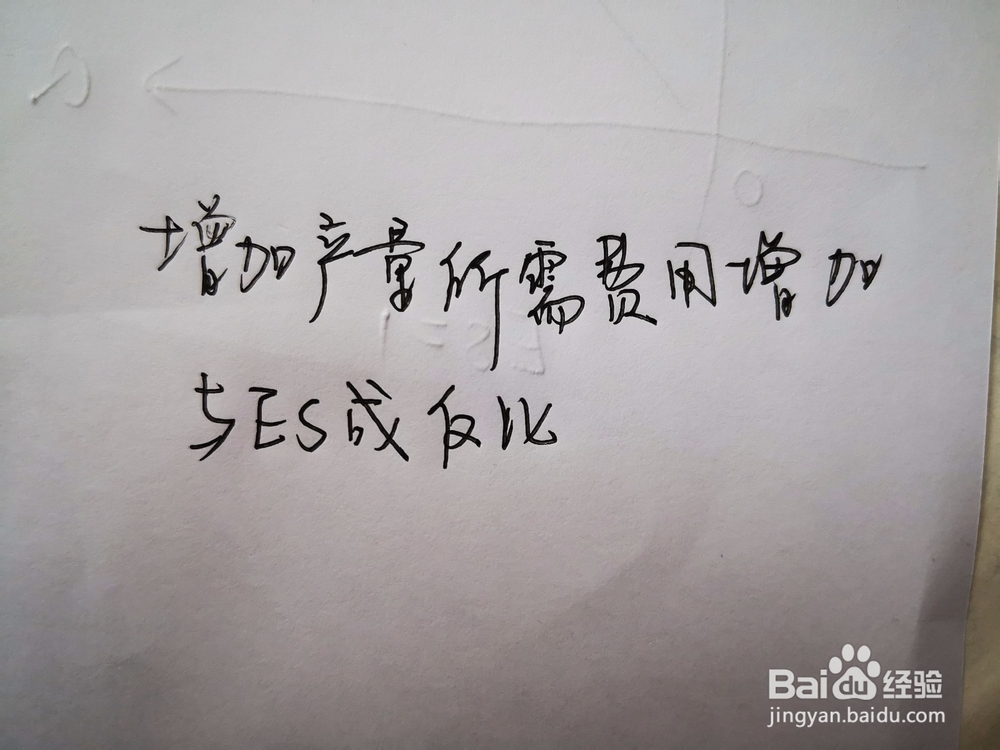 增加产量所需费用增加
与ES成反比
Baidu经验
jingyan.baidu.com